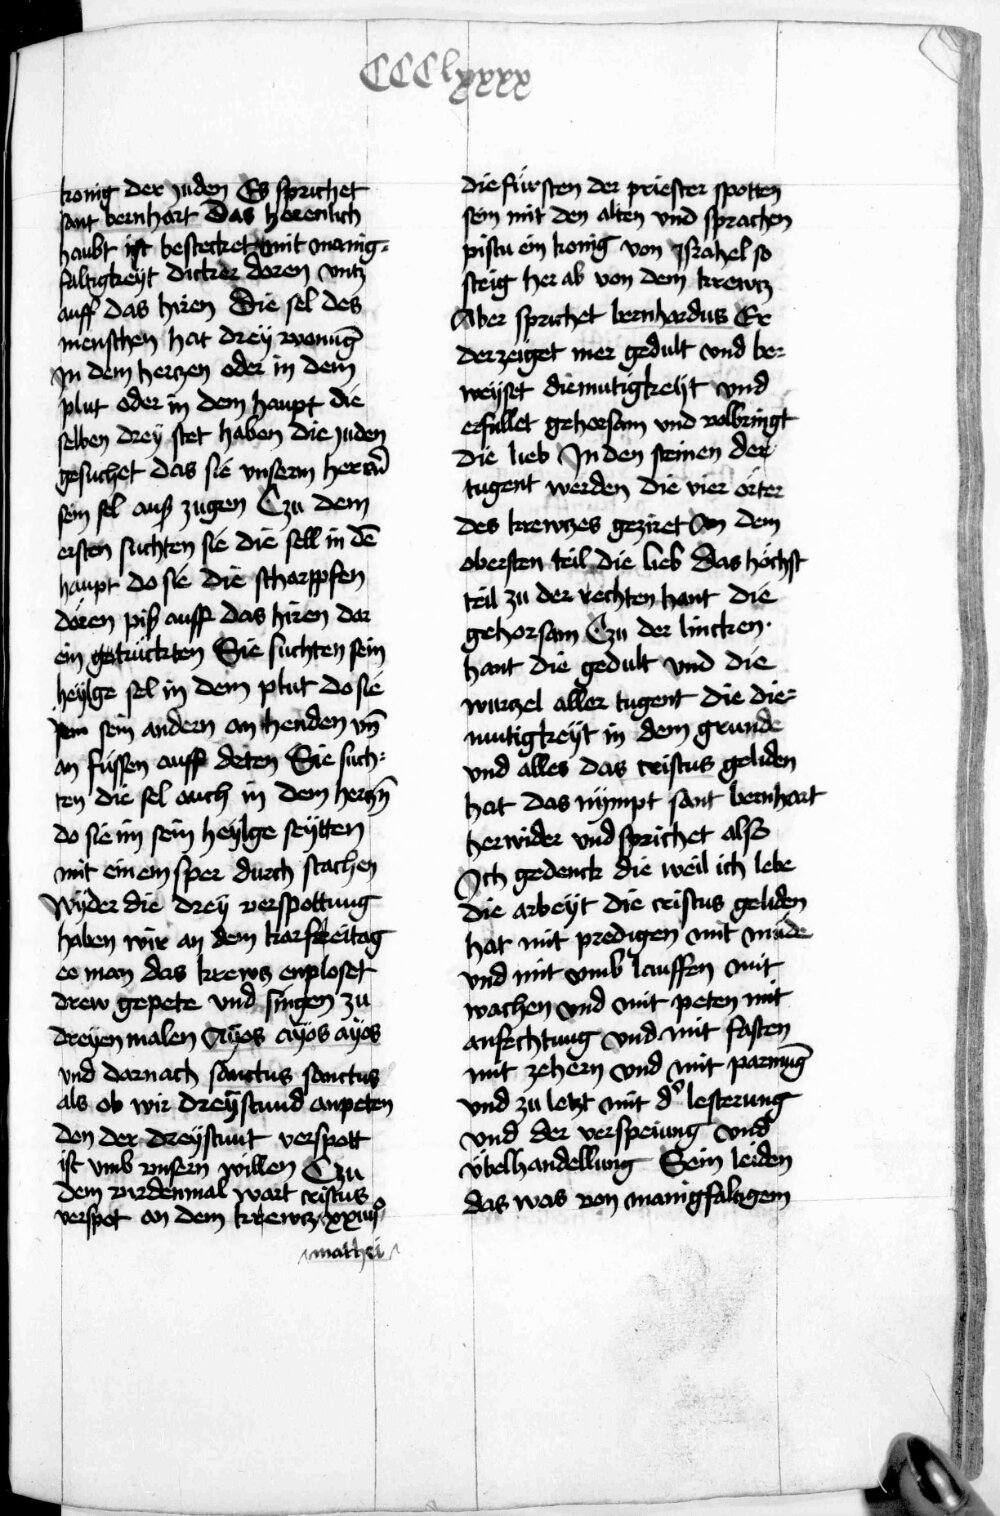 CCClxxxx
konig der juden Es sprichet
sant bernhart Das herenlich
haubt ist bestecket mit manig-
faltigkeyt dicker doren vntz
auff das hiren Die sel des
menschen hat drey wonūg
In dem hertzen oder in dem
plut oder in dem haupt die
selben drey stet haben die juden
gesuchet das sie vnserm herrn̄
sein sel auß zugen Czu dem
ersten suchten sie die sell in dē
haupt do sie die scharppfen
dören piß auff das hiren dar
ein gedrückten Sie suchten sein
heylge sel in dem plut do sie
sein andern an henden vn̄
an füssen auff deten Sie such-
ten die sel auch in dem hertzn̄
do sie im sein heylge seytten
mit einem sper durch stachen
Wyder die drey verspottung
haben wir an dem karfreitag
eo man das krewtz enploset
drew gepete vnd singen zu
dreyen malen Ayos ayos ayos
vnd darnach sanctus sanctus
als ob wir dreystund anpeten
den der dreystunt verspott
ist vmb vnsern willen Czu
dem virdenmal wart cristus
verspot an dem krewtz xxiiiiº
mathei
die fürsten der priester spotten
sein mit den alten vnd sprachen
pistu ein konig von Israhel so
steig her ab von dem krewtz
Aber sprichet bernhardus Er
derzeiget mer gedult vnd be-
weyset diemutigkeyt vnd
erfullet gehorsam vnd volbringt
die lieb In den steinen der
tugent werden die vier örter
des krewtzes geziret An dem
obersten teil die lieb Das höchst
teil zu der rechten hant die
gehorsam Czu der lincken
hant die gedult vnd die
wurtzel aller tugent die die-
mutigkeyt in dem grunde
vnd alles das cristus geliden
hat das nympt sant bernhart
herwider vnd sprichet also
Ich gedenck die weil ich lebe
die arbeyt die cristus geliden
hat mit predigen mit müde
vnd mit vmb lauffen mit
wachen vnd mit peten mit
anfechtung vnd mit fasten
mit zehern vnd mit parmūg
vnd zu letzt mit dº lesterung
vnd der verspeiung vnd
übelhandellung Sein leiden
das was von manigfaltigem